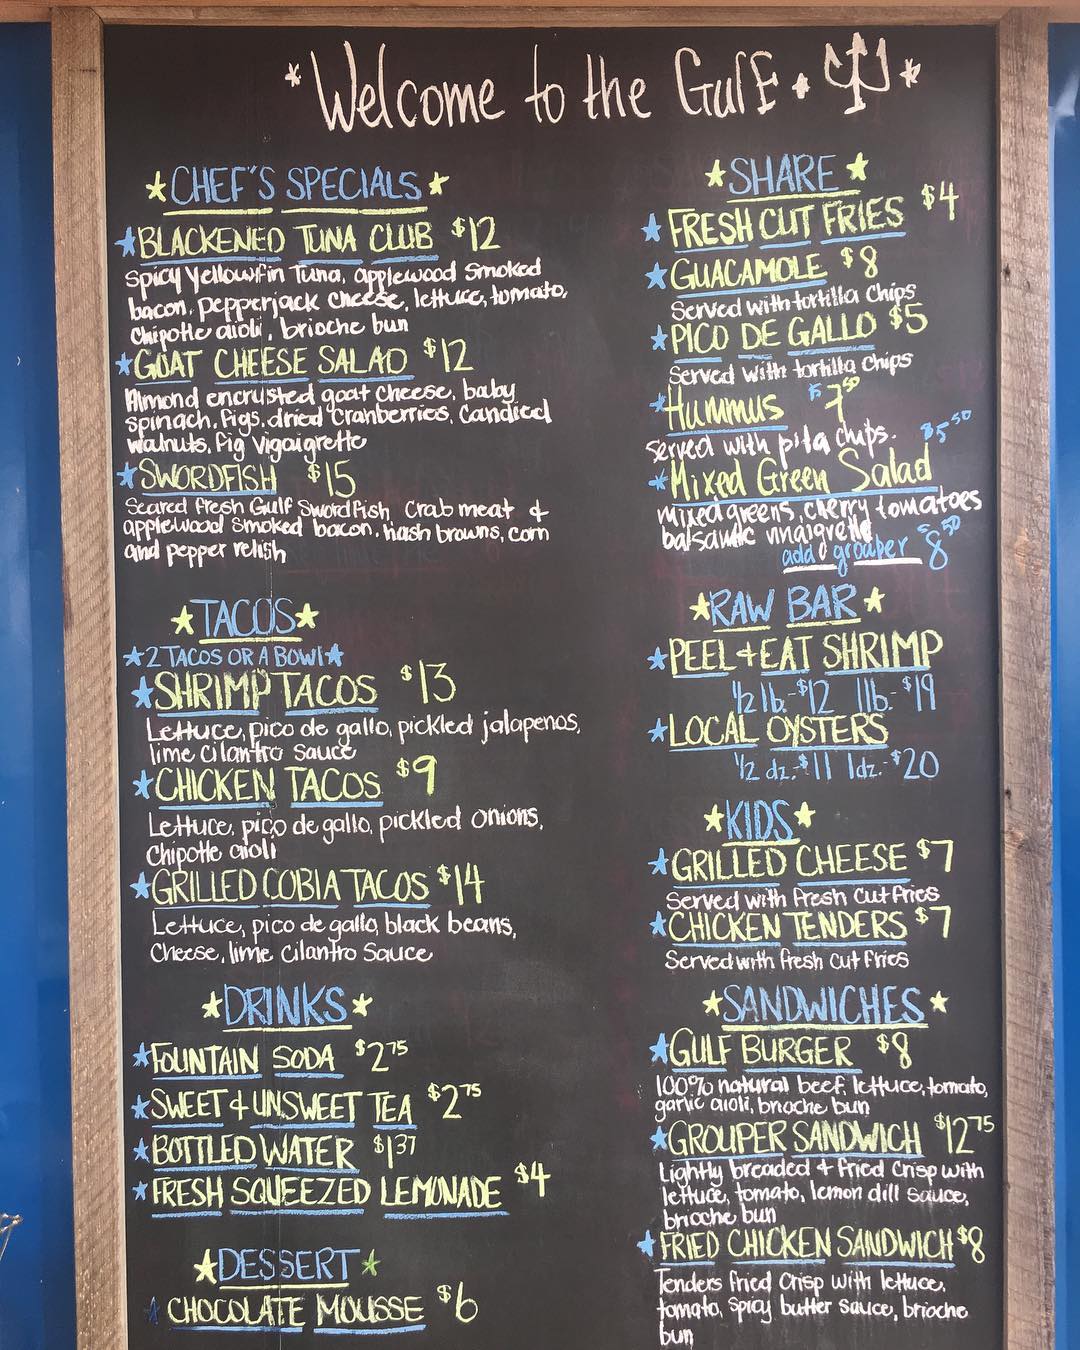 *Welcome to the Gulf*
CHEF'S SPECIALS
BLACKENED TUNA CLUB $12
Spicy Yellowfin Tuna, applewood smoked
bacon, pepperjack cheese, lettuce, tomato,
Chipotle aioli, brioche bun
GOAT CHEESE SALAD $12
Almond encrusted goat cheese, baby
spinach, figs, dried cranberries, candied
walnuts, fig vigaigrette
SWORDFISH $15
Seared fresh Gulf Swordfish Crab meat &
applewood smoked bacon, hash browns, corn
and pepper relish
TACOS
2 TACOS OR A BOWL
SHRIMP TACOS $13
Lettuce, pico de gallo, pickled jalapenos,
lime cilantro sauce
CHICKEN TACOS $9
Lettuce, pico de gallo, pickled onions,
Chipotle aioli
GRILLED COBIA TACOS $14
Lettuce, pico de gallo, black beans,
Cheese, lime cilantro sauce
DRINKS
FOUNTAIN SODA $2.75
SWEET & UNSWEET TEA $2.75
BOTTLED WATER $1.37
FRESH SQUEEZED LEMONADE $4
DESSERT
CHOCOLATE MOUSSE $6
SHARE
FRESH CUT FRIES $4
GUACAMOLE $8
Served with tortilla chips
PICO DE GALLO $5
Served with tortilla chips
Hummus $7.50
served with pita chips.
Mixed Green Salad $5.50
mixed greens, cherry tomatoes
balsamic vinaigrette
add grouper $8.50
RAW BAR
PEEL & EAT SHRIMP
1/2 lb.-$12 1lb.-$19
LOCAL OYSTERS
1/2 dz.-$11 1dz.-$20
KIDS
GRILLED CHEESE $7
Served with fresh cut fries
CHICKEN TENDERS $7
Served with fresh cut fries
SANDWICHES
GULF BURGER $8
100% natural beef, lettuce, tomato,
garlic aioli, brioche bun
GROUPER SANDWICH $12.75
Lightly breaded & fried crisp with
lettuce, tomato, lemon dill sauce,
brioche bun
FRIED CHICKEN SANDWICH $8
Tenders fried crisp with lettuce,
tomato, spicy butter sauce, brioche
bun